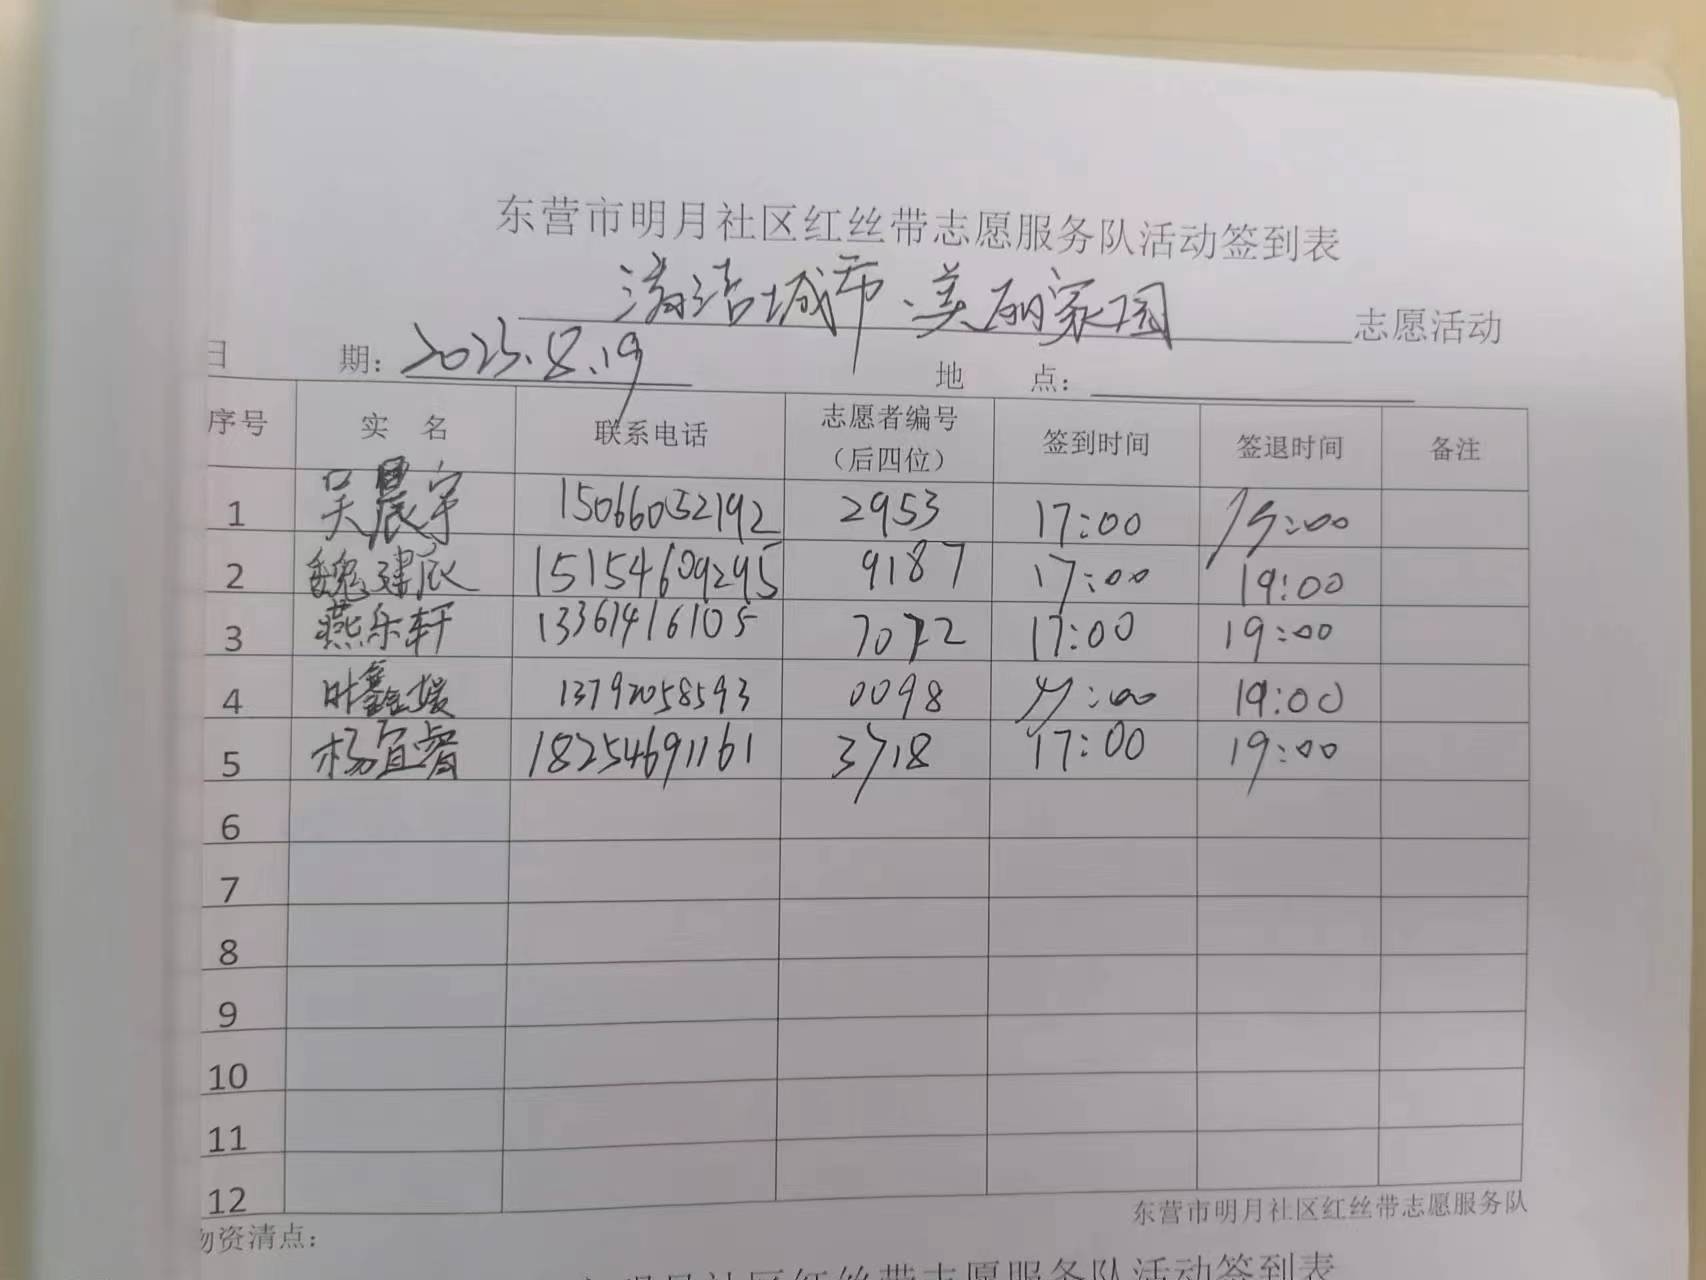 东营市明月社区红丝带志愿服务队活动签到表
清洁城市.美丽家园 志愿活动
日 期：2023.8.19 地 点：
序号 实 名 联系电话 志愿者编号（后四位） 签到时间 签退时间 备注
1 吴晨宇 15066052192 2953 17:00 19:00
2 魏建辰 15154609295 9187 17:00 19:00
3 燕乐轩 13361416105 7072 17:00 19:00
4 叶鑫媛 13792058593 0098 17:00 19:00
5 杨宜睿 18254691161 3718 17:00 19:00
6
7
8
9
10
11
12
东营市明月社区红丝带志愿服务队
物资清点：
市明月社区红丝带志愿服务队活动签到表